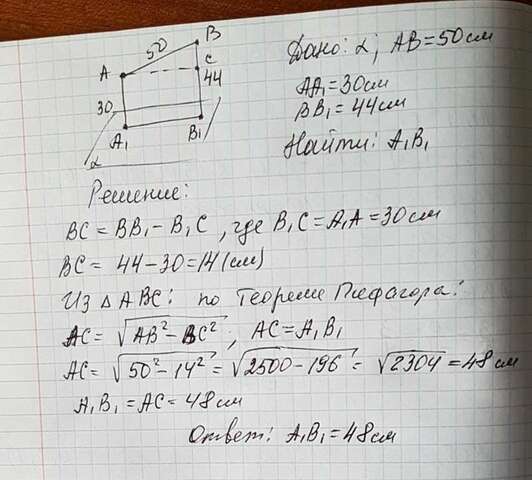 50
B
A
C
44
30
A₁
B₁
α
Дано: α; AB = 50 см
AA₁ = 30 см
BB₁ = 44 см
Найти: A₁B₁
Решение:
BC = BB₁ - B₁C, где B₁C = A₁A = 30 см
BC = 44 - 30 = 14 (см)
Из △ABC: по Теореме Пифагора:
AC = √(AB² - BC²); AC = A₁B₁
AC = √(50² - 14²) = √(2500 - 196) = √2304 = 48 см
A₁B₁ = AC = 48 см
Ответ: A₁B₁ = 48 см